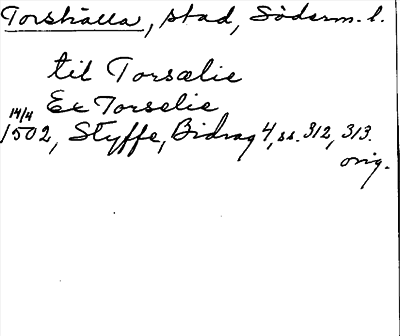 Torshälla, stad, Söderm. l.
til Torsælie
Ex Torselie
14/4
1502, Styffe, Bidrag 4, ss. 312, 313.
orig.